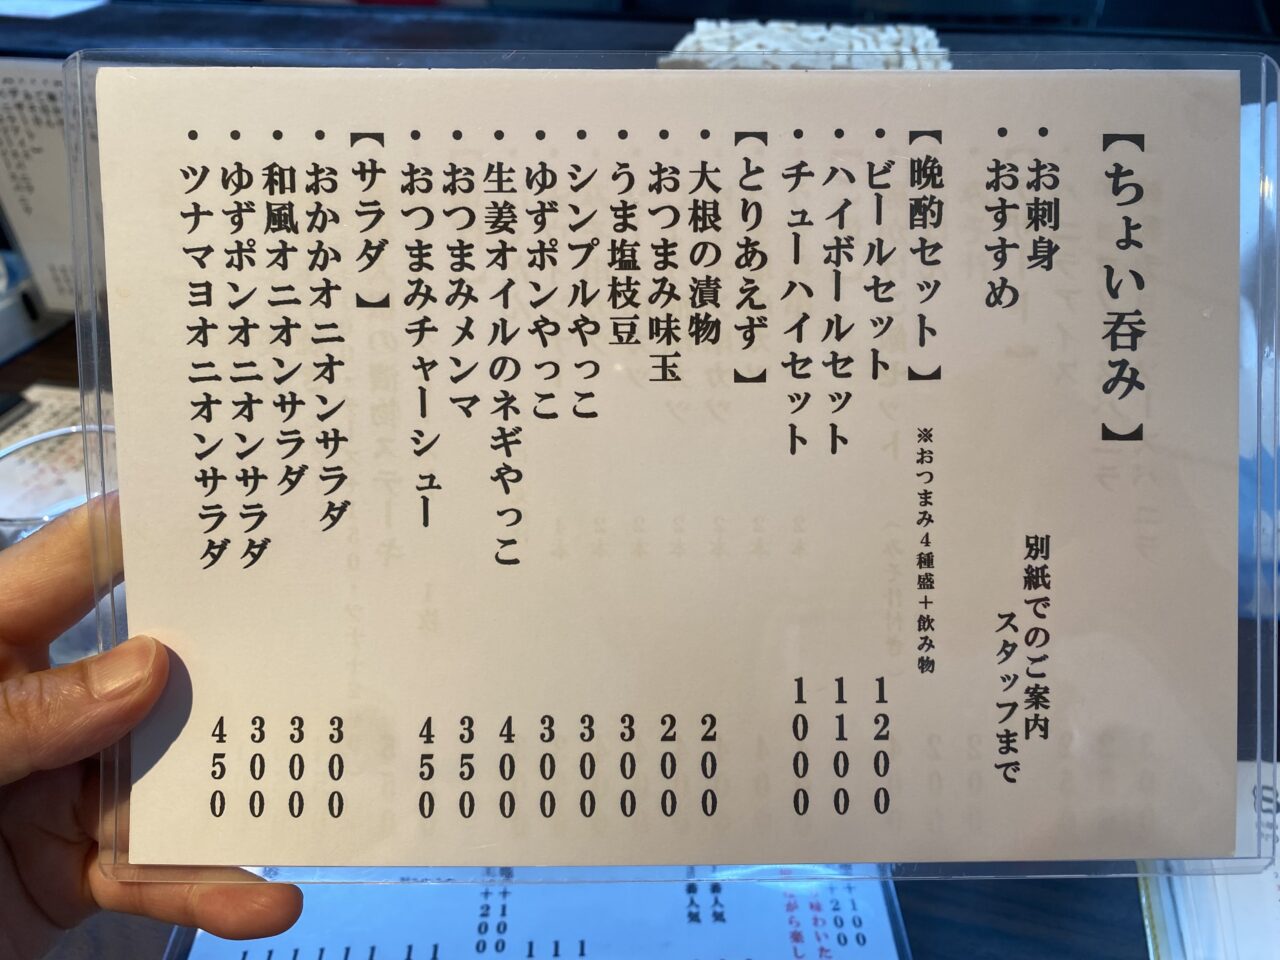 【ちょい呑み】
・お刺身 別紙でのご案内
・おすすめ スタッフまで
【晩酌セット】 ※おつまみ4種盛+飲み物
・ビールセット 1200
・ハイボールセット 1100
・チューハイセット 1000
【とりあえず】
・大根の漬物 200
・おつまみ味玉 200
・うま塩枝豆 300
・シンプルやっこ 300
・ゆずポンやっこ 300
・生姜オイルのネギやっこ 400
・おつまみメンマ 350
・おつまみチャーシュー 450
【サラダ】
・おかかオニオンサラダ 300
・和風オニオンサラダ 300
・ゆずポンオニオンサラダ 300
・ツナマヨオニオンサラダ 450